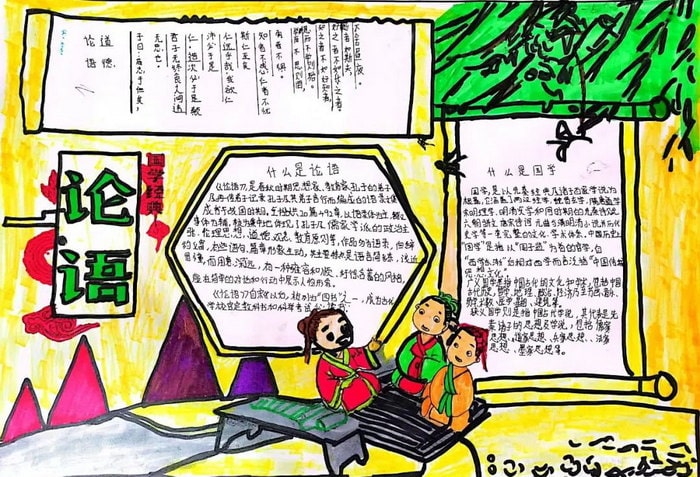 论语
道德
子曰：苟志于仁矣，
无恶也。
君子无终食之间违
仁，造次必于是，颠
沛必于是
仁远乎哉？我欲仁
斯仁至矣
知者不惑，仁者不忧
国学经典
论语
什么是论语
《论语》，是春秋时期思想家、教育家孔子的弟子
及再传弟子记录孔子及其弟子言行而编成的语录文集
成书于战国前期。全书共20篇492章，以语录体为主，叙
事体为辅，较为集中地体现了孔子及儒家学派的政治主
张、伦理思想、道德观念、教育原则等。作品多为语录，但辞
约义富，有些语句、篇章形象生动，其主要特点是语言简练，浅近
易懂，而用意深远，有一种雍容和顺、纡徐含蓄的风格，
能在简单的对话和行动中展示人物形象
《论语》自宋代以后，被列为“四书”之一，成为古代
学校官定教科书和科举考试必读书。
什么是国学
国学，是以先秦经典及诸子百家学说为
根基，它涵盖了两汉经学、魏晋玄学、隋唐道学
宋明理学、明清实学和同时期的先秦诗赋
六朝骈文、唐宋诗词、元曲与明清小说并历代
史学等一套完整的文化、学术体系。中国历史上
“国学”是指以“国子监”为首的官学，自
“西学东渐”后相对西学而言泛指“中国传统
思想文化”
广义国学是指中国古代的文化和学术，包括中国
古代历史、哲学、地理、政治、经济乃至书画、音乐、
易学、术数、医学、星相、建筑等。
狭义国学则是指中国古代学说，其代表是先
秦诸子的思想及学说，包括儒家
思想、道家思想、兵家思想、法家
思想、墨家思想等。